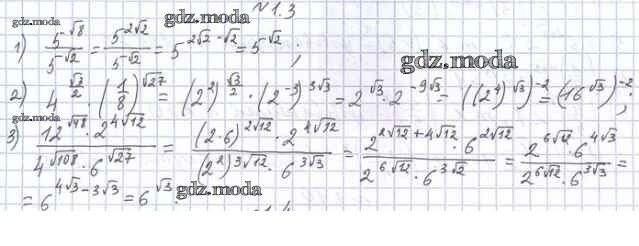 №1.3
gdz.moda
1) 5^√8 / 5^√2 = 5^(2√2) / 5^√2 = 5^(2√2 - √2) = 5^√2 ;
gdz.moda
2) 4^(√3/2) · (1/8)^√27 = (2²)^(√3/2) · (2^-3)^(3√3) = 2^√3 · 2^(-9√3) = ((2⁴)^√3)^-2 = (16^√3)^-2 ;
gdz.moda
3) 12^√48 · 2^(4√12) / 4^√108 · 6^√27 = (2·6)^(2√12) · 2^(4√12) / (2²)^(3√12) · 6^(3√3) = 2^(2√12+4√12) · 6^(2√12) / 2^(6√12) · 6^(3√2) = 2^(6√12) · 6^(4√3) / 2^(6√12) · 6^(3√3) =
= 6^(4√3 - 3√3) = 6^√3 .
gdz.moda